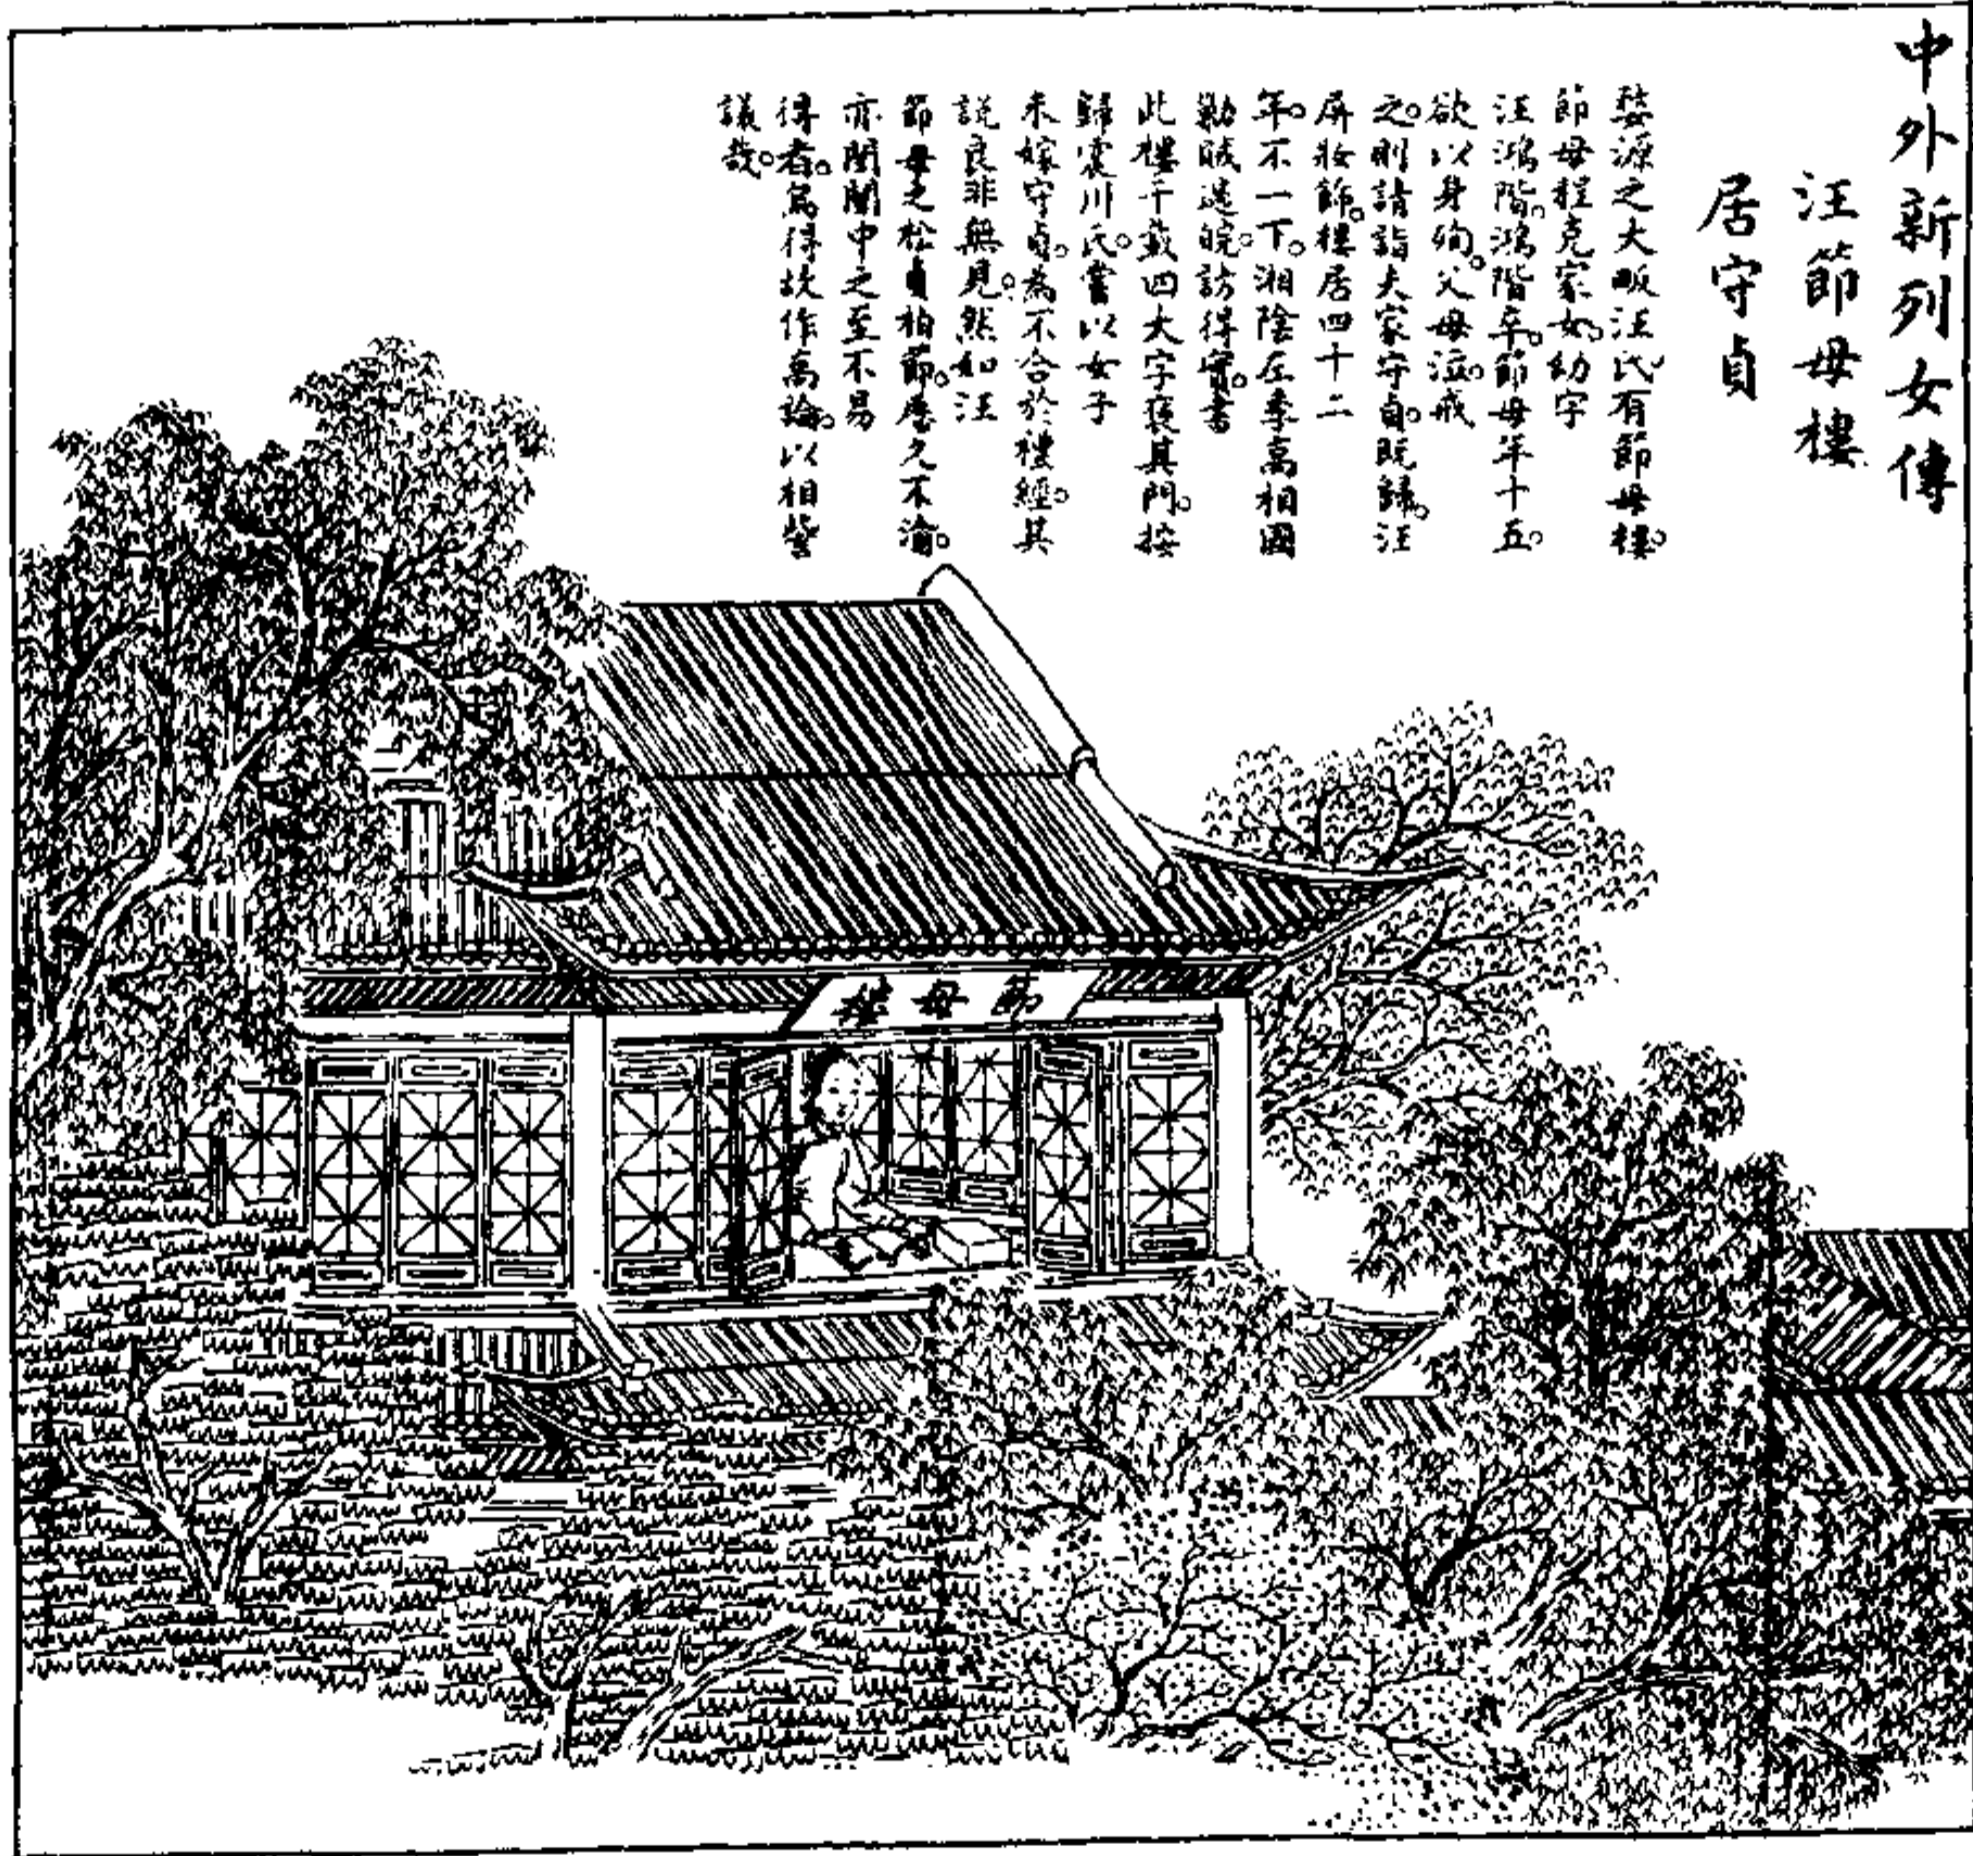 中外新列女傳
汪節母樓
居守貞
婺源之大畈汪氏有節母樓。
節母程克家女。幼字
汪鴻階。鴻階卒。節母年十五。
欲以身殉。父母泣戒
之。則請詣夫家守貞。既歸汪
屏妝飾。樓居四十二
年。不一下。湘陰左季高相國
勦賊過皖。訪得實。書
此樓千載四大字褒其門。按
歸震川氏嘗以女子
未嫁守貞。為不合於禮經。其
說良非無見。然如汪
節母之松貞柏節。歷久不渝。
亦閨闈中之至不易
得者。烏得故作高論。以相訾
議哉。
節母樓